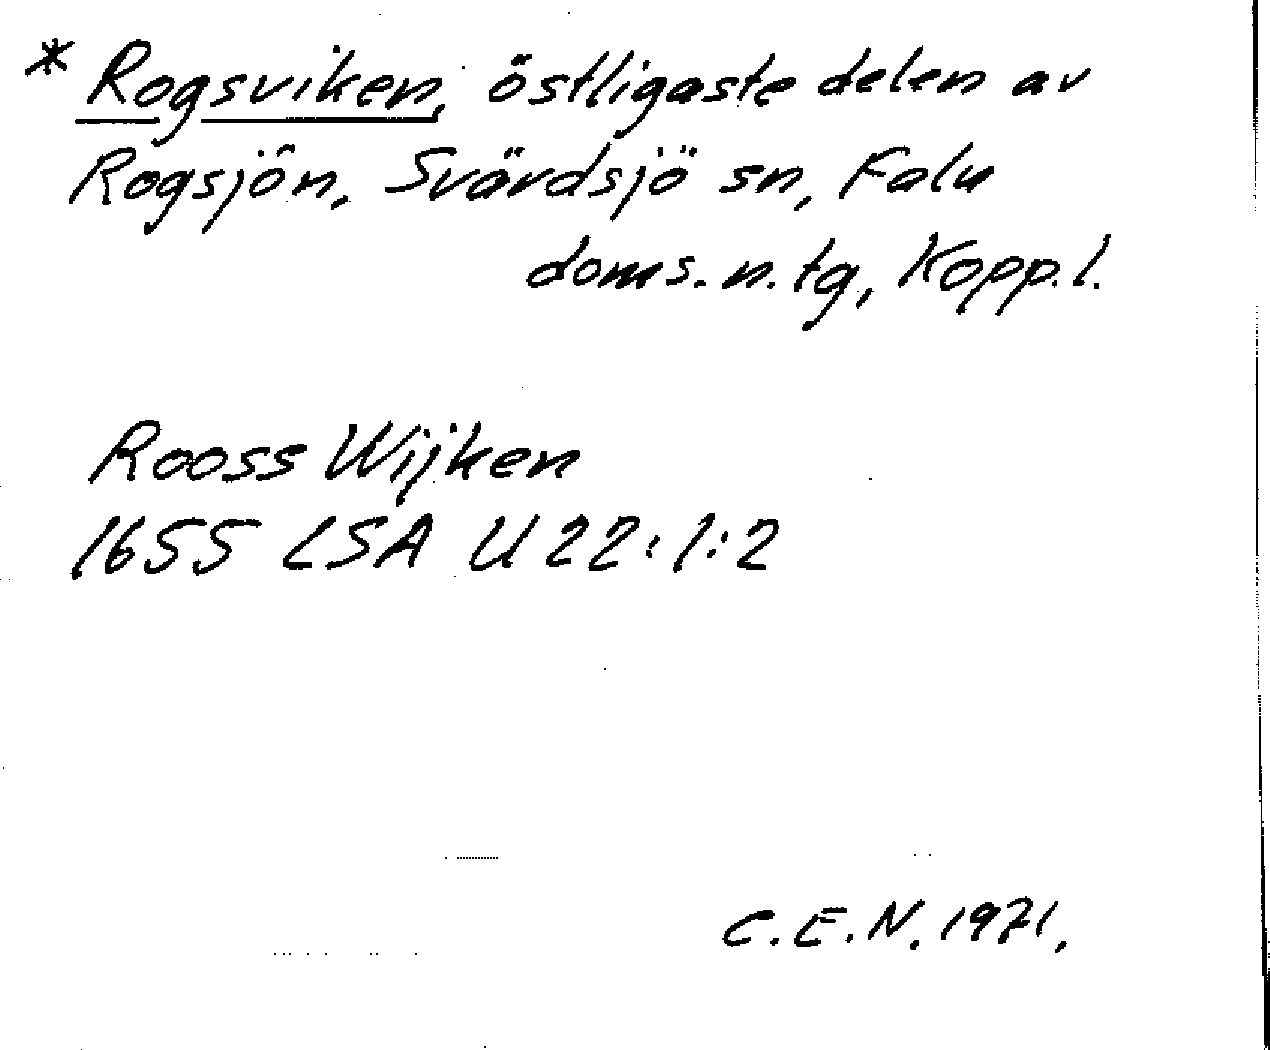 * Rogsviken, östligaste delen av
Rogsjön, Svärdsjö sn, Falu
doms.n.tg, Kopp.l.
Rooss Wijken
1655 LSA U 22:1:2
C.E.N. 1971.